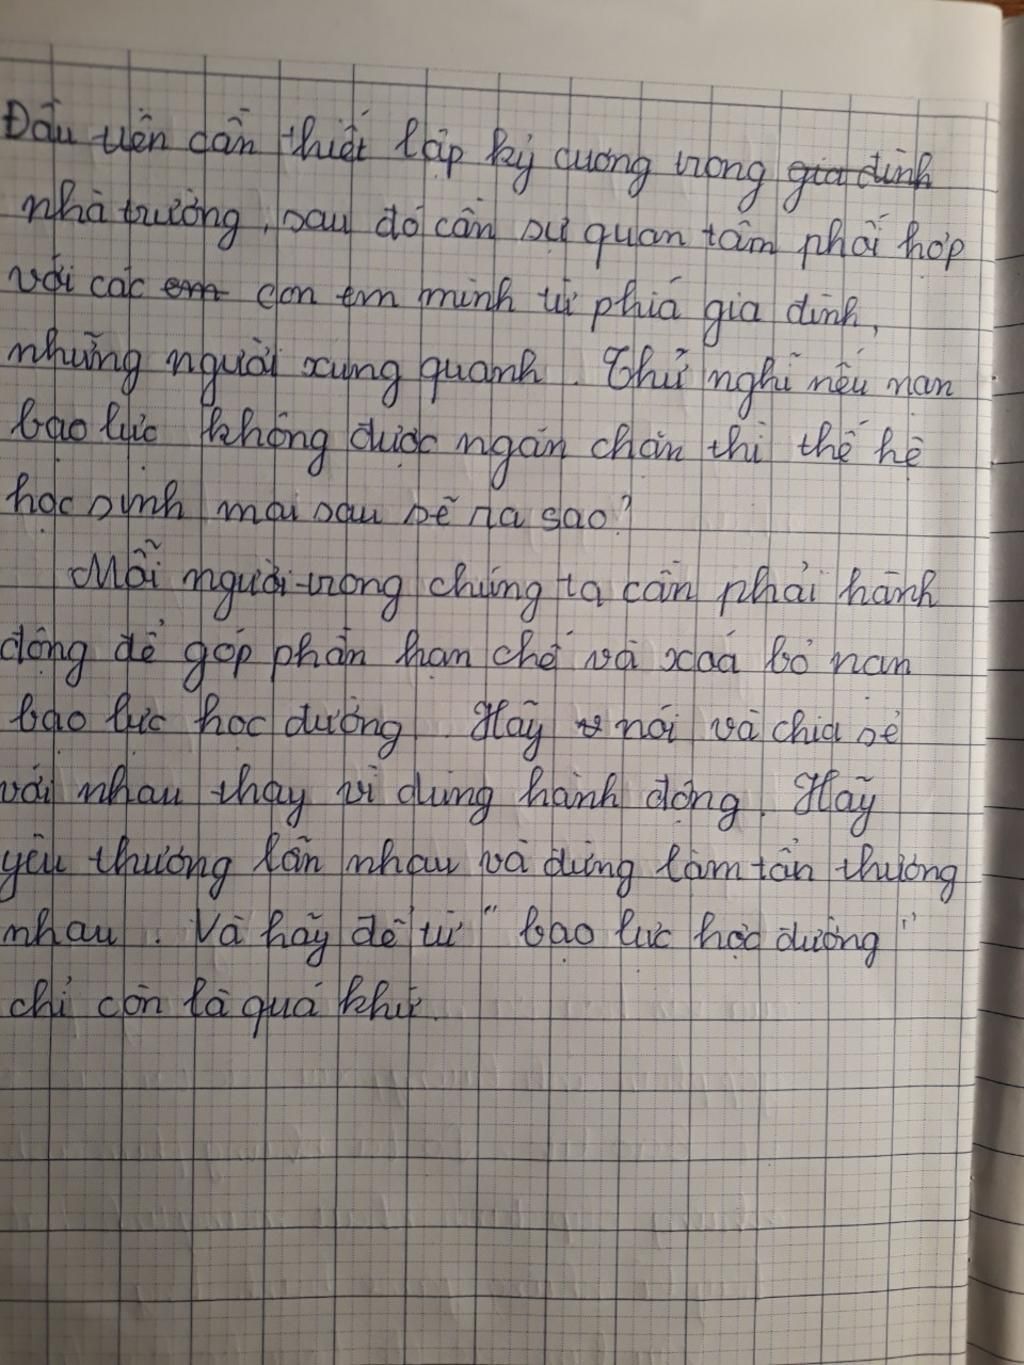 Đầu tiên cần thiết lập kỷ cương trong gia đình
nhà trường, sau đó cần sự quan tâm phối hợp
với các em con em mình từ phía gia đình,
những người xung quanh. Thử nghĩ nếu nạn
bạo lực không được ngăn chặn thì thế hệ
học sinh mai sau sẽ ra sao?
Mỗi người trong chúng ta cần phải hành
động để góp phần hạn chế và xoá bỏ nạn
bạo lực học đường. Hãy nói và chia sẻ
với nhau thay vì dùng hành động. Hãy
yêu thương lẫn nhau và đừng làm tổn thương
nhau. Và hãy để từ "bạo lực học đường"
chỉ còn là quá khứ.